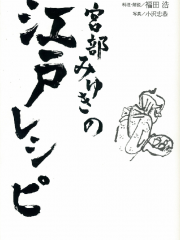 料理・解説／福田 浩
写真／小沢忠恭
宮部みゆきの
江戸レシピ